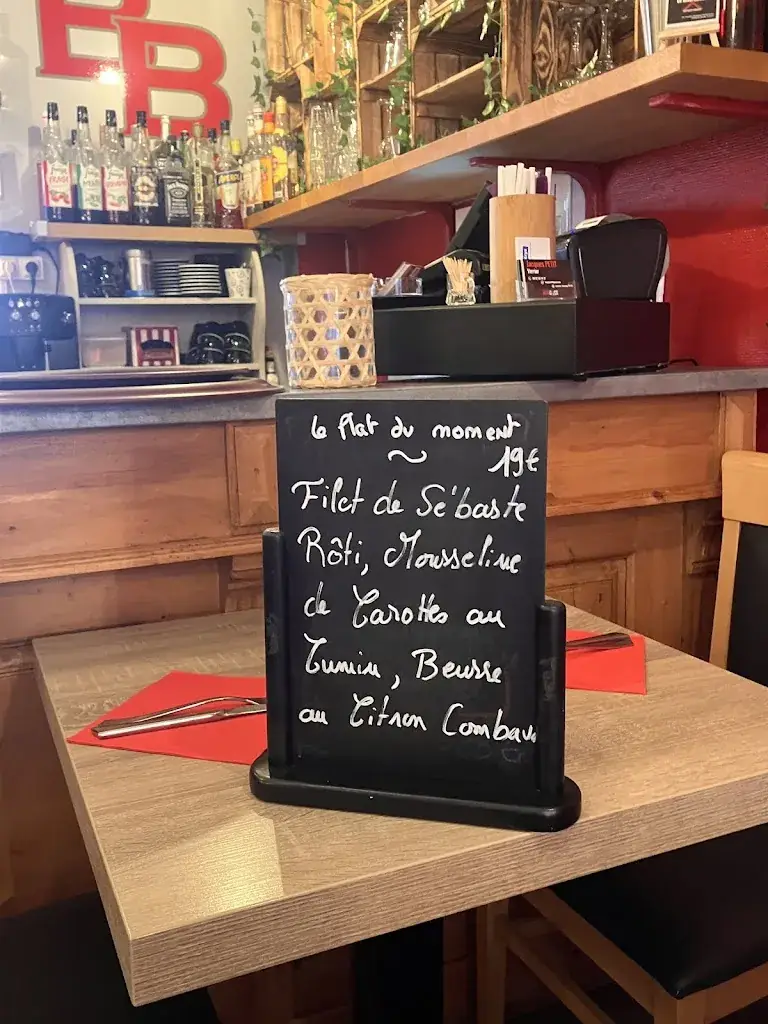 BB
Le Plat du moment
19€
Filet de Sébaste
Rôti, Mousseline
de Carottes au
Cumin, Beurre
au Citron Combava
Jacques PETIT